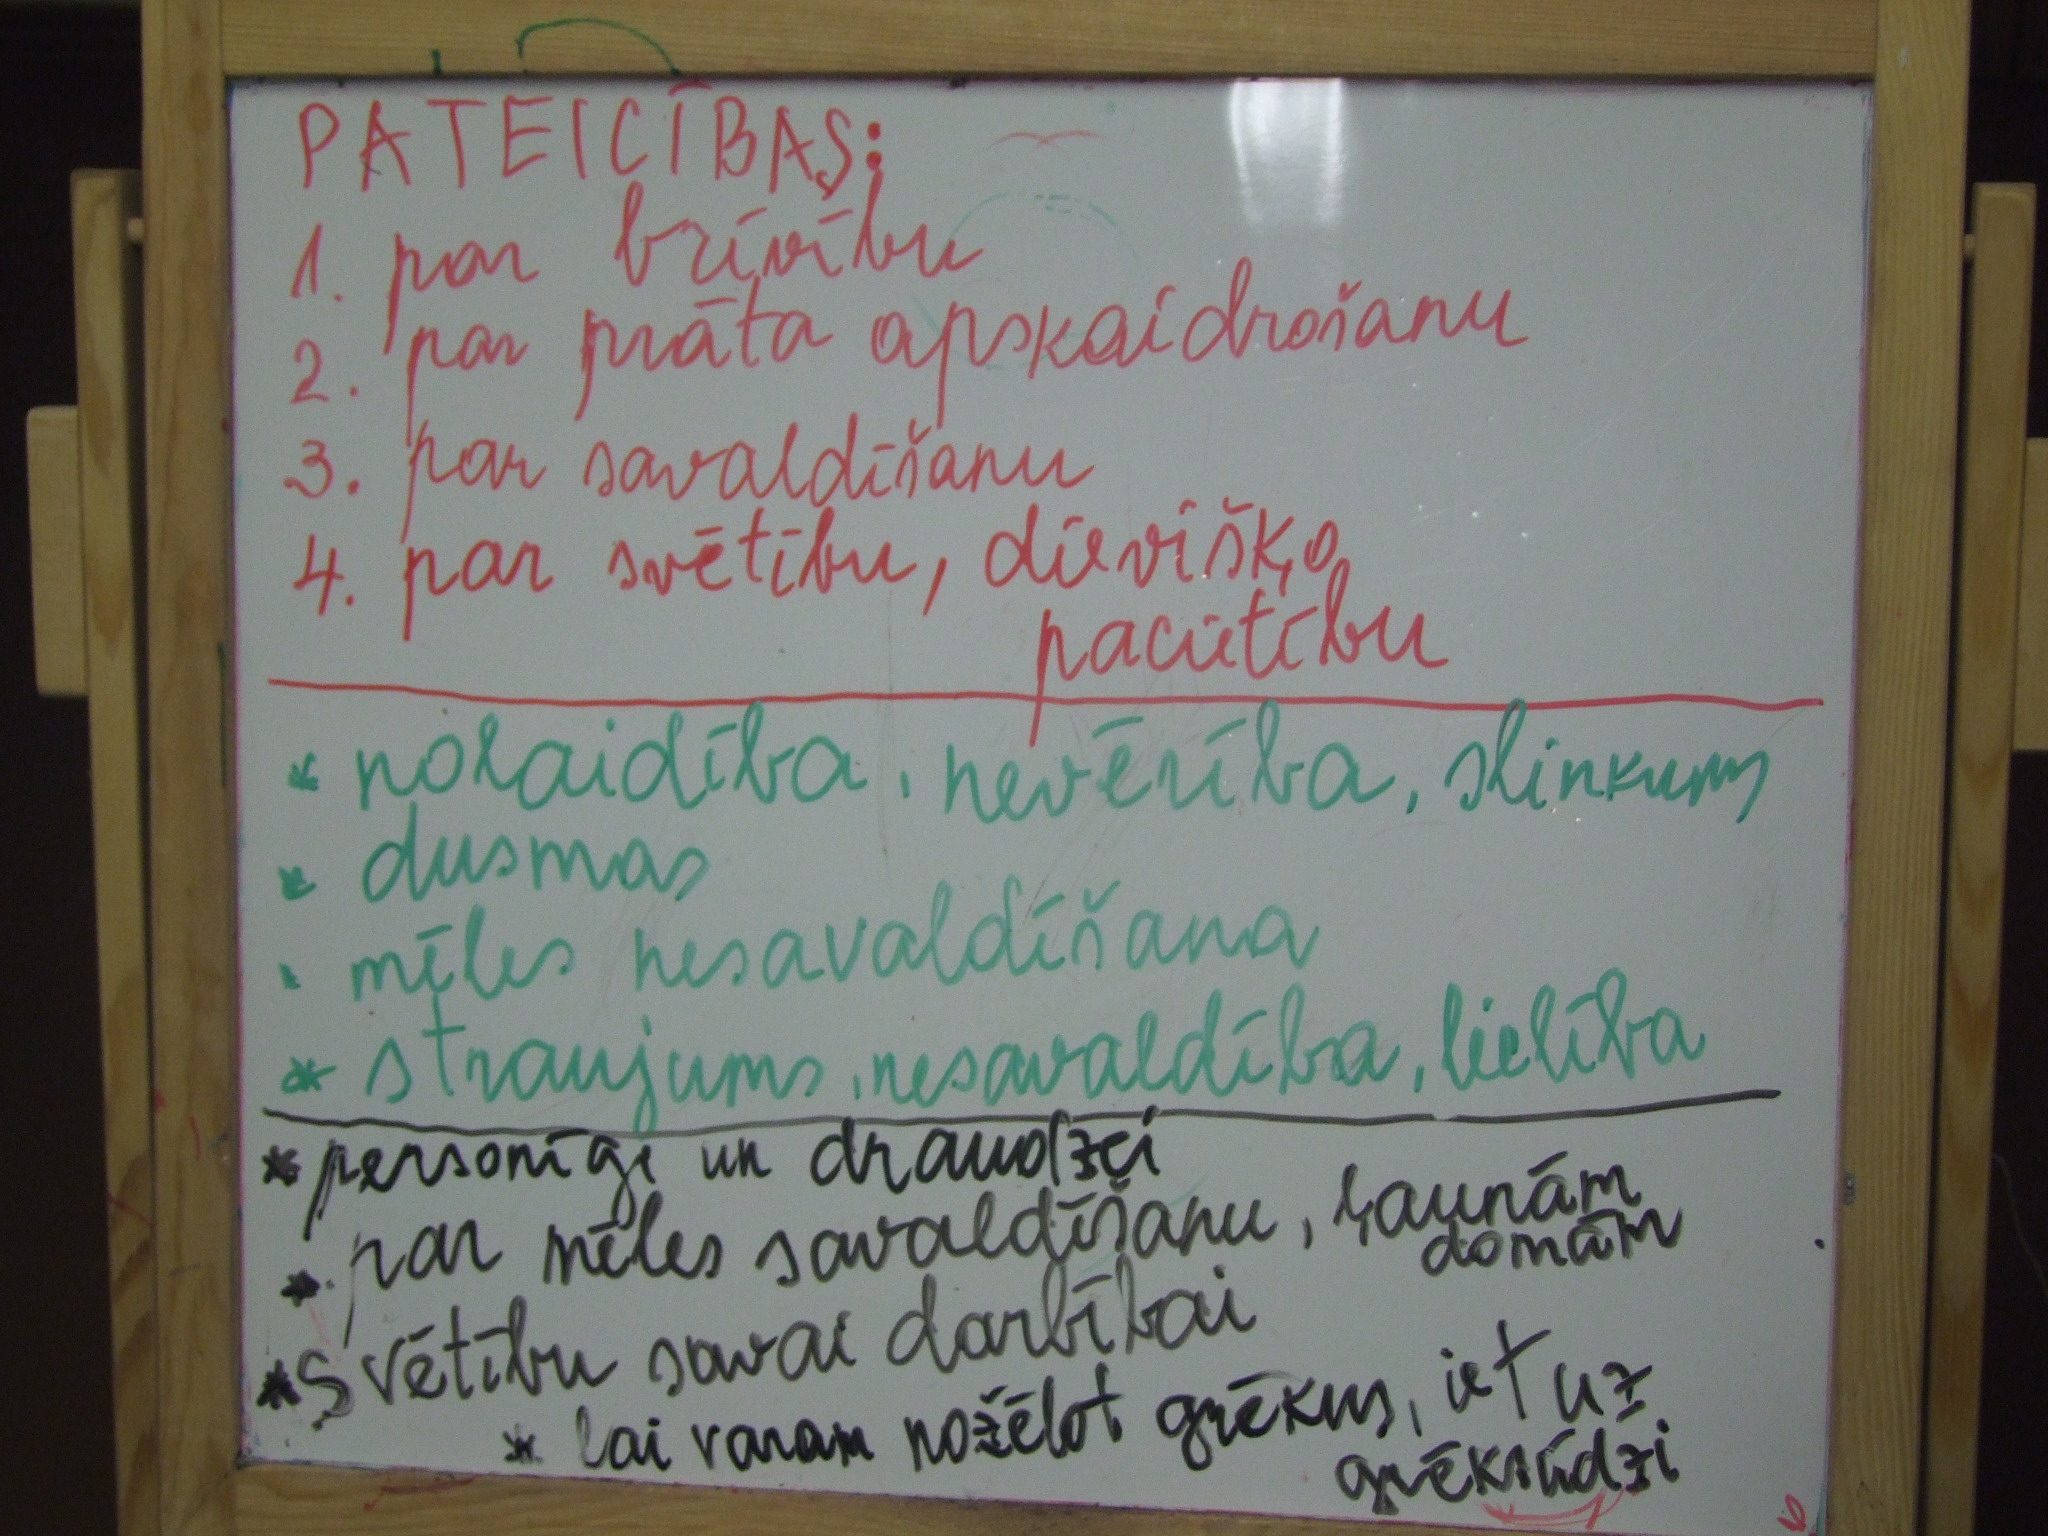 PATEICĪBAS:
1. par brīvību
2. par prāta apskaidrošanu
3. par savaldīšanu
4. par svētību, dievišķo
pacietību
* nolaidība, nevērība, slinkums
* dusmas
* mēles nesavaldīšana
* straujums, nesavaldība, lielība
* personīgi un draudzei
* par mēles savaldīšanu, ļaunām
domām
* Svētību savai darbībai
* lai varam nožēlot grēkus, iet uz
grēksūdzi